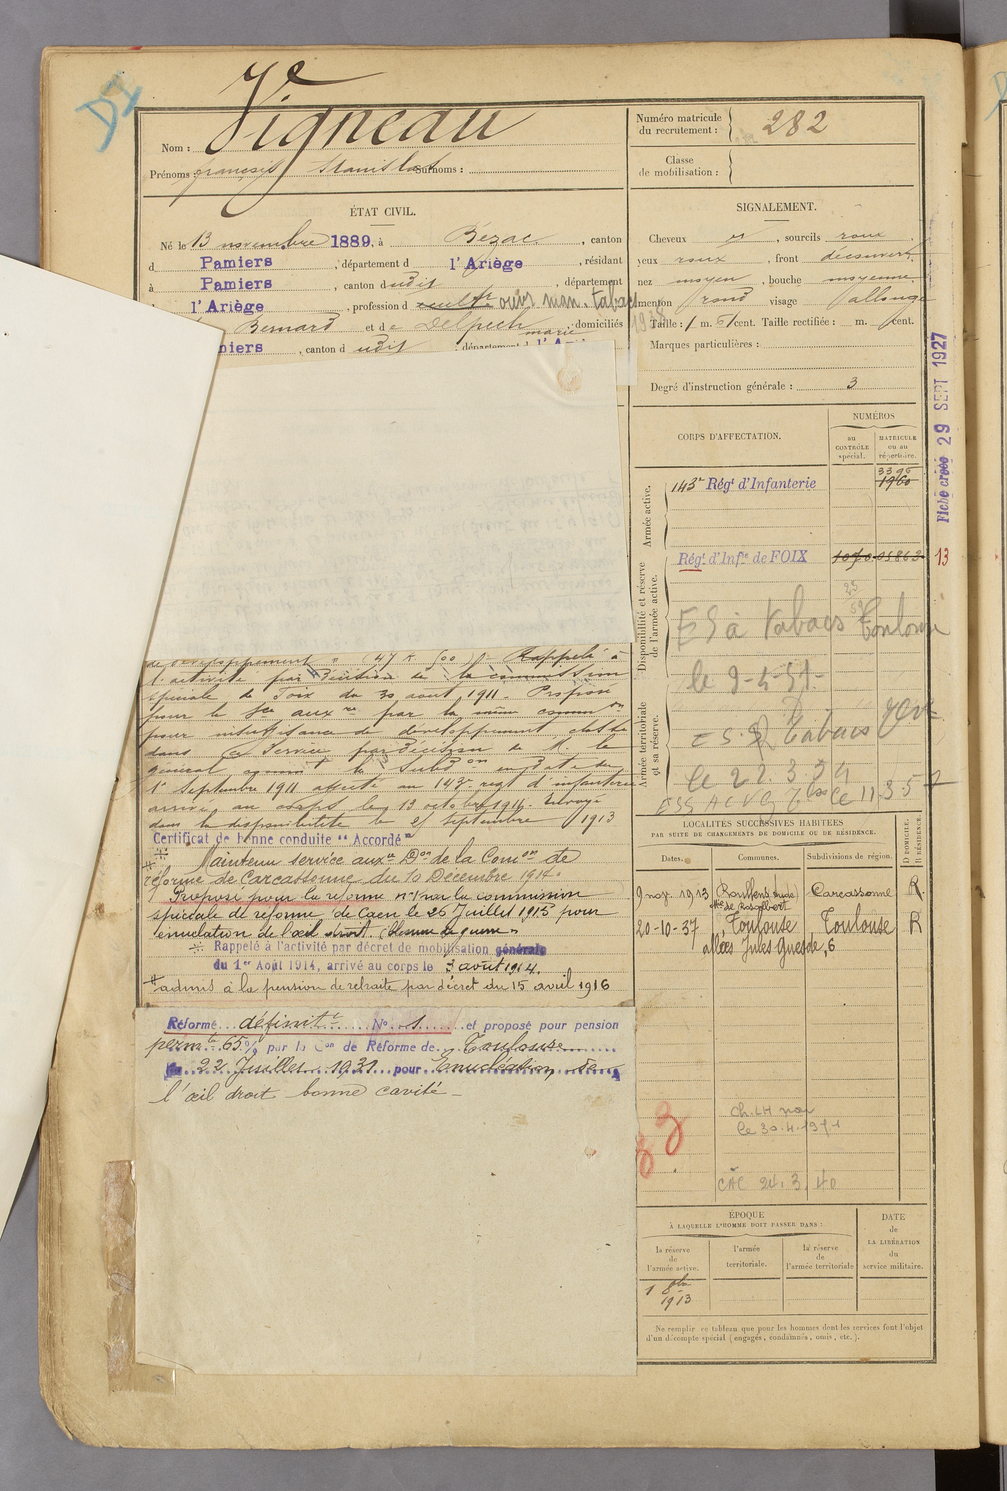 Vigneau
Nom :
Prénoms : françois Stanislas Surnoms :
Numéro matricule
du recrutement : 282
Classe
de mobilisation :
ÉTAT CIVIL.
Né le 13 novembre 1889, à Bézac, canton
d Pamiers, département d l'Ariège, résidant
à Pamiers, canton d udit, département
l'Ariège, profession d cult.r ouvr man. tabacs
Bernard et de Delpech marie, domiciliés
miers, canton d udit, département d l'A
SIGNALEMENT.
Cheveux, sourcils roux
yeux roux, front découvert
nez moyen, bouche moyenne
menton rond visage allongé
Taille : 1 m. 51 cent. Taille rectifiée : m. cent.
Marques particulières :
Degré d'instruction générale : 3
CORPS D'AFFECTATION.
NUMÉROS
au
CONTRÔLE
spécial.
MATRICULE
ou au
répertoire.
Armée active.
143e Régt d'Infanterie
3396
1960
Disponibilité et réserve
de l'armée active.
Régt d'Infie de FOIX
13
ES à Tabacs Toulouse
le 9-5-51-
Armée territoriale
et sa réserve.
ES. Tabacs
le 22.3.34
le 11.3.5
Fiche créée 29 SEPT 1927
de développement
l'activité par décision de la commission
spéciale de Foix du 30 aout 1911. Proposé
pour le sce auxre par la même common
pour insuffisance de développement classé
dans ce Service par décision de M. le
général commt la Subdon en date du
1er Septembre 1911 affecté au 143e regt d'infanterie
arrivé au corps le 13 octobre 1911. Envoyé
dans la disponibilité le 25 septembre 1913
Certificat de bonne conduite "Accordé"
Maintenu service auxre Don de la Comon de
réforme de Carcassonne du 10 Décembre 1914.
Proposé pour la réforme n°1 par la commission
spéciale de réforme de Caen le 26 Juillet 1915 pour
énucléation de l'œil droit. (blessure de guerre)
Rappelé à l'activité par décret de mobilisation générale
du 1er Août 1914, arrivé au corps le 3 août 1914.
admis à la pension de retraite par décret du 15 avril 1916
Réformé définitt N° 1 et proposé pour pension
permte 65% par la Con de Réforme de Toulouse
du 22 Juillet 1931 pour Enucléation de
l'œil droit bonne cavité
LOCALITÉS SUCCESSIVES HABITÉES
PAR SUITE DE CHANGEMENTS DE DOMICILE OU DE RÉSIDENCE.
Dates.
Communes.
Subdivisions de région.
D DOMICILE.
R RÉSIDENCE.
9 nov. 1913 Roullens Carcassonne R.
20-10-37 Toulouse Toulouse R
allées Jules Guesde, 6
Ch. LH
CAC 24.3.40
ÉPOQUE
À LAQUELLE L'HOMME DOIT PASSER DANS :
la réserve
de
l'armée active.
l'armée
territoriale.
la réserve
de
l'armée territoriale
DATE
de
LA LIBÉRATION
du
service militaire.
1 8bre
1913
Ne remplir ce tableau que pour les hommes dont les services font l'objet
d'un décompte spécial (engagés, condamnés, omis, etc.).